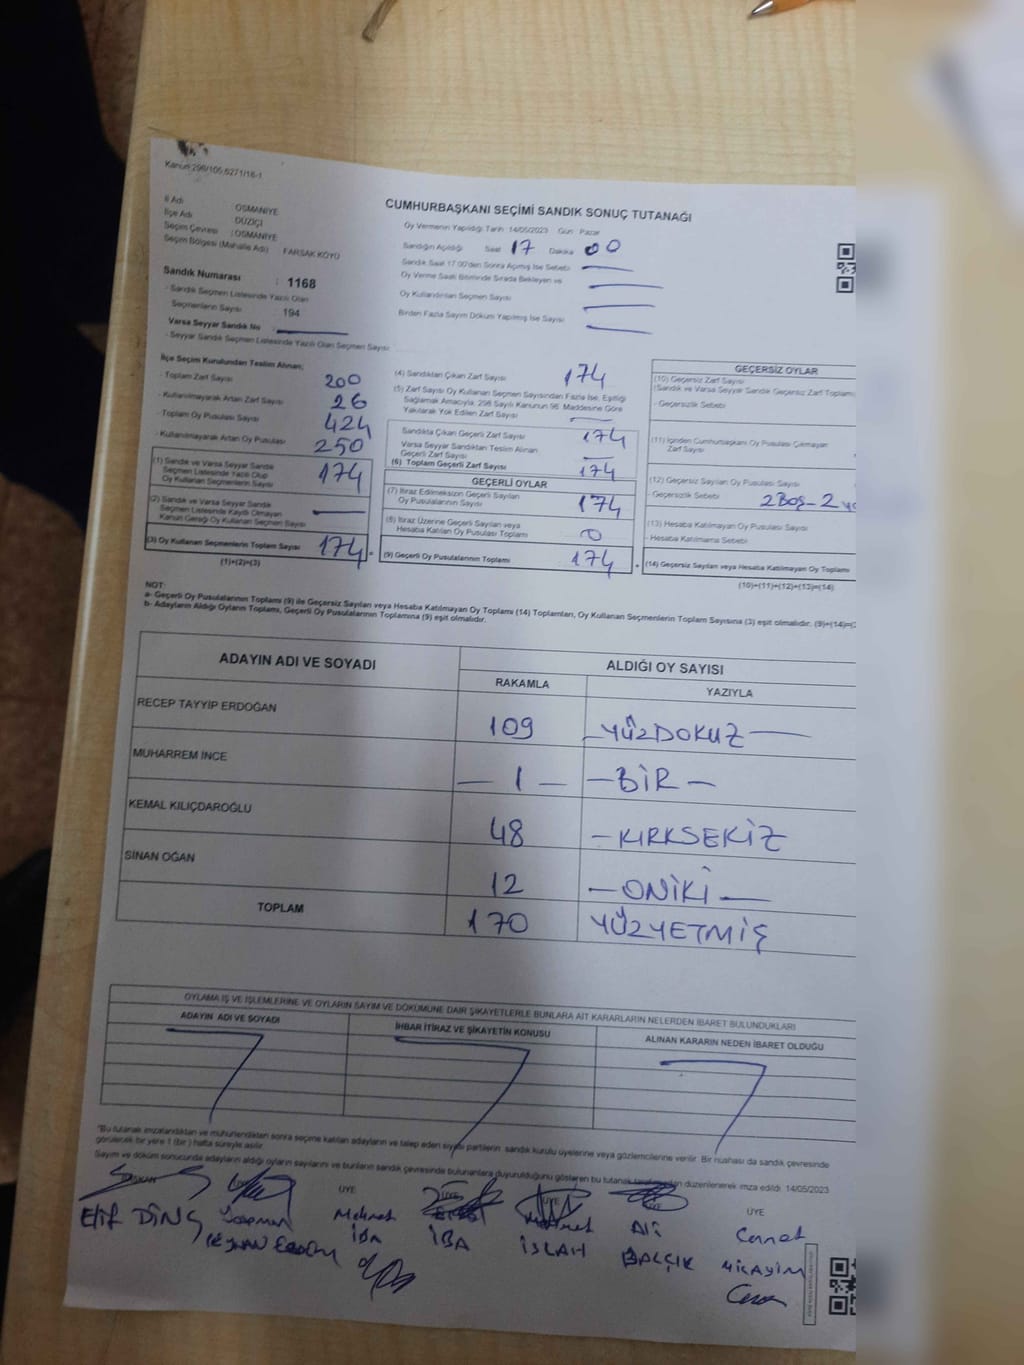 Kanun:298/105,6271/16-1
CUMHURBAŞKANI SEÇİMİ SANDIK SONUÇ TUTANAĞI
İl Adı : OSMANİYE
İlçe Adı DÜZİÇİ
Seçim Çevresi : OSMANİYE
Seçim Bölgesi (Mahalle Adı) FARSAK KÖYÜ
Sandık Numarası : 1168
- Sandık Seçmen Listesinde Yazılı Olan
Seçmenlerin Sayısı 194
Varsa Seyyar Sandık No
- Seyyar Sandık Seçmen Listesinde Yazılı Olan Seçmen Sayısı
Oy Vermenin Yapıldığı Tarih 14/05/2023 Gün Pazar
Sandığın Açıldığı Saat 17 Dakika 00
Sandık Saat 17.00'den Sonra Açılmış İse Sebebi
Oy Verme Saati Bitiminde Sırada Bekleyen ve
Oy Kullandırılan Seçmen Sayısı
Birden Fazla Sayım Döküm Yapılmış İse Sayısı
İlçe Seçim Kurulundan Teslim Alınan;
- Toplam Zarf Sayısı 200
- Kullanılmayarak Artan Zarf Sayısı 26
- Toplam Oy Pusulası Sayısı 424
- Kullanılmayarak Artan Oy Pusulası 250
(1) Sandık ve Varsa Seyyar Sandık
Seçmen Listesinde Yazılı Olup
Oy Kullanan Seçmenlerin Sayısı 174
(2) Sandık ve Varsa Seyyar Sandık
Seçmen Listesinde Kayıtlı Olmayan
Kanun Gereği Oy Kullanan Seçmen Sayısı
(3) Oy Kullanan Seçmenlerin Toplam Sayısı 174
(1)+(2)=(3)
(4) Sandıktan Çıkan Zarf Sayısı 174
(5) Zarf Sayısı Oy Kullanan Seçmen Sayısından Fazla İse, Eşitliği
Sağlamak Amacıyla; 298 Sayılı Kanunun 98. Maddesine Göre
Yakılarak Yok Edilen Zarf Sayısı
Sandıkta Çıkan Geçerli Zarf Sayısı 174
Varsa Seyyar Sandıktan Teslim Alınan
Geçerli Zarf Sayısı
(6) Toplam Geçerli Zarf Sayısı 174
GEÇERLİ OYLAR
(7) İtiraz Edilmeksizin Geçerli Sayılan
Oy Pusulalarının Sayısı 174
(8) İtiraz Üzerine Geçerli Sayılan veya
Hesaba Katılan Oy Pusulası Toplamı 0
(9) Geçerli Oy Pusulalarının Toplamı 174
GEÇERSİZ OYLAR
(10) Geçersiz Zarf Sayısı
(Sandık ve Varsa Seyyar Sandık Geçersiz Zarf Toplamı
- Geçersizlik Sebebi
(11) İçinden Cumhurbaşkanı Oy Pusulası Çıkmayan
Zarf Sayısı
(12) Geçersiz Sayılan Oy Pusulası Sayısı
- Geçersizlik Sebebi 2 Boş-2
(13) Hesaba Katılmayan Oy Pusulası Sayısı
- Hesaba Katılmama Sebebi
(14) Geçersiz Sayılan veya Hesaba Katılmayan Oy Toplamı
(10)+(11)+(12)+(13)=(14)
NOT:
a- Geçerli Oy Pusulaları Toplamı (9) ile Geçersiz Sayılan veya Hesaba Katılmayan Oy Toplamı (14) Toplamları, Oy Kullanan Seçmenlerin Toplam Sayısına (3) eşit olmalıdır. (9)+(14)=(
b- Adayların Aldığı Oyların Toplamı, Geçerli Oy Pusulalarının Toplamına (9) eşit olmalıdır.
ADAYIN ADI VE SOYADI
ALDIĞI OY SAYISI
RAKAMLA YAZIYLA
RECEP TAYYİP ERDOĞAN 109 YÜZDOKUZ
MUHARREM İNCE — 1 — — BİR —
KEMAL KILIÇDAROĞLU 48 — KIRKSEKİZ
SİNAN OĞAN 12 — ONİKİ —
TOPLAM 170 YÜZYETMİŞ
OYLAMA İŞ VE İŞLEMLERİNE VE OYLARIN SAYIM VE DÖKÜMÜNE DAİR ŞİKAYETLERLE BUNLARA AİT KARARLARIN NELERDEN İBARET BULUNDUKLARI
ADAYIN ADI VE SOYADI İHBAR İTİRAZ VE ŞİKAYETİN KONUSU ALINAN KARARIN NEDEN İBARET OLDUĞU
"Bu tutanak imzalandıktan ve mühürlendikten sonra seçime katılan adayların ve talep eden siyasi partilerin sandık kurulu üyelerine veya gözlemcilerine verilir. Bir nüshası da sandık çevresinde
görülecek bir yere 1 (bir ) hafta süreyle asılır.
Sayım ve döküm sonucunda adayların aldığı oyların sayılarını ve bunların sandık çevresinde bulunanlara duyurulduğunu gösteren bu tutanak tarafımızdan düzenlenerek imza edildi. 14/05/2023
BAŞKAN ÜYE ÜYE ÜYE ÜYE ÜYE ÜYE
Elif DİNÇ Mehmet İBA Mehmet Ali Cennet
İBA İSLAH BALÇIK